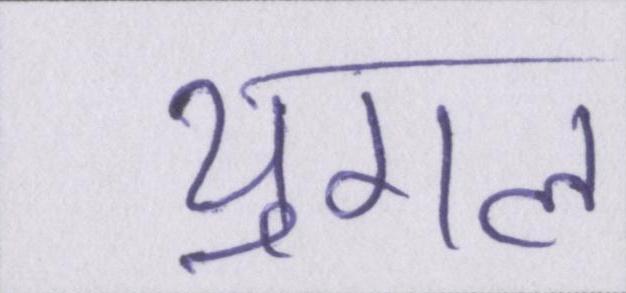 युगल